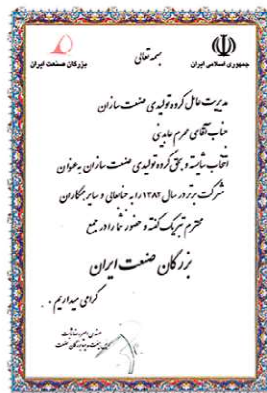 بسمه تعالی
جمهوری اسلامی ایران
بزرگان صنعت ایران
مدیریت عامل گروه تولیدی صنعت سازان
جناب آقای محرم عابدینی
انتخاب شایسته و بحق گروه تولیدی صنعت سازان به عنوان
شرکت برتر در سال ۱۳۸۲ را به جنابعالی و سایر همکاران
محترم تبریک گفته و حضور شما را در جمع
بزرگان صنعت ایران
گرامی میداریم .